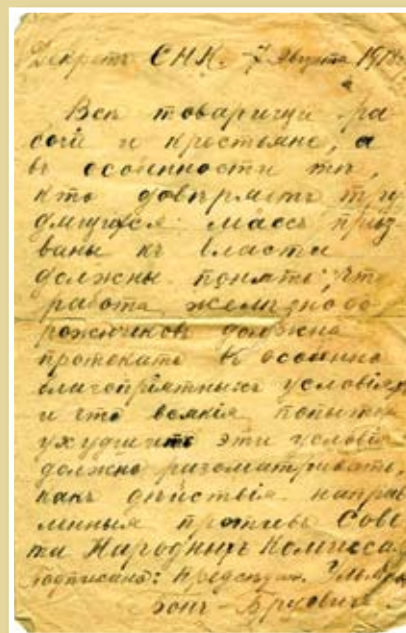 Декретъ СНК. 7 Августа 1918
Всѣ товарищи ра
бочіи и крестьяне, а
въ особенности тѣ,
кто довѣріемъ тру
дящихся массъ приз
ваны къ власти
должны понять, что
работа желѣзнодо
рожниковъ должна
протекать в особенно
благопріятныхъ условіях
и что всякія попытки
ухудшить эти условія
должно разсматривать,
какъ дѣйствія направ
ленныя противъ Сове
та Народныхъ Комисса
Подписано: Председ.
Бонч-Бруевич